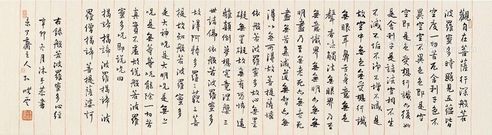 觀自在菩薩行深般若
波羅蜜多時照見五蘊皆
空度一切苦厄舍利子色不
異空空不異色色即是空
空即是色受想行識亦復如
是舍利子是諸法空相不生
不滅不垢不淨不增不減是
故空中無色無受想行識
無眼耳鼻舌身意無色
聲香味觸法無眼界乃至
無意識界無無明亦無無明
盡乃至無老死亦無老死
盡無苦集滅道無智亦無
得以無所得故菩提薩埵
依般若波羅蜜多故心無罣
礙無罣礙故無有恐怖遠離
顛倒夢想究竟涅槃三
世諸佛依般若波羅蜜多
故得阿耨多羅三藐三菩
提故知般若波羅蜜多
是大神咒是大明咒是無上
咒是無等等咒能除一切苦
真實不虛故說般若波羅
蜜多咒即說咒曰
揭諦揭諦波羅揭諦波
羅僧揭諦菩提薩婆訶
右錄般若波羅蜜多心經
辛卯六月